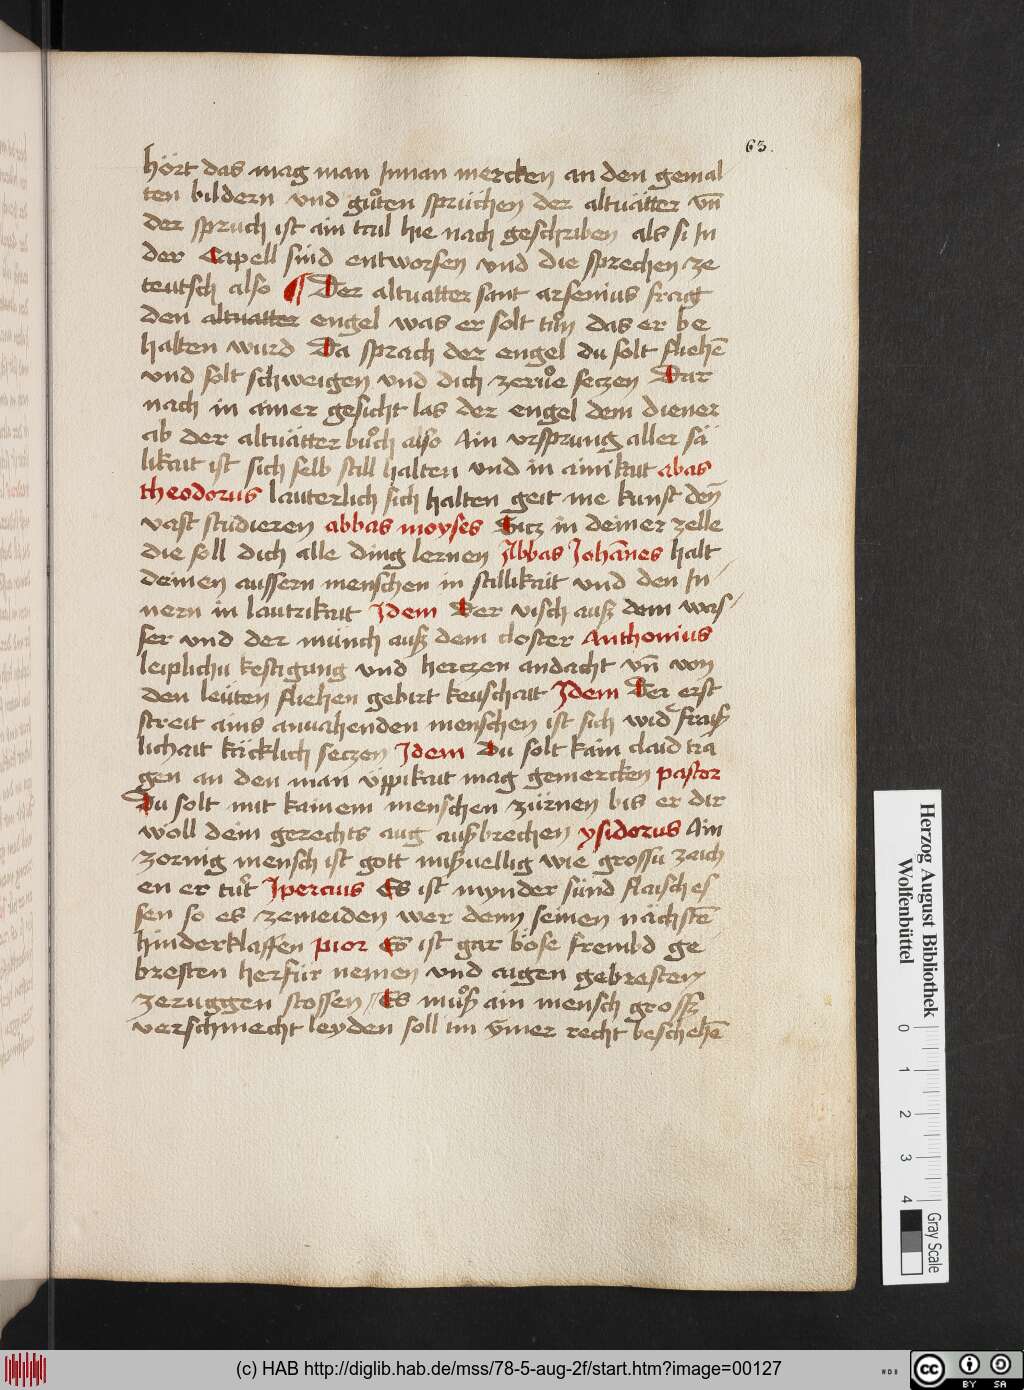 63.
hört das mag man Innan mercken an den gemal
ten bildern vnd guͦten sprüchen der altuätter vn̄
der spruch ist ain tail hie nach geschriben als si In
der Capell sind entworfen vnd die sprechen ze
teutsch also ¶ Der altuatter sant arsenius frag
den altuatter engel was er solt tuͦn das er be
halten wurd Da sprach der engel du solt fliehē
vnd solt schweigen vnd dich ze ruͦe seczen Dar
nach in ainer gesicht las der engel dem diener
ab der altuätter buͦch also Ain vrsprung aller sä
likait ist sich selb still halten vnd in ainikait abas
theodorus lauterlich sich halten geit me kunst den̄
vast studieren abbas moyses Sicz in deiner zelle
die soll dich alle ding lernen Abbas Johānes halt
deinen aussern menschen in stillikait vnd den In-
nern in lautrikait Idem Der visch auß dem was-
ser vnd der münch auß dem closter Anthonius
leiplichu kestigung vnd herczen andacht vn̄ von
den leüten fliehen gebirt keuschait Idem Der erst
streit ains anuahenden menschen ist sich wid fräß
lichait käcklich seczen Idem Du solt kain claid tra
gen an den man üppikait mag gemercken pastor
Du solt mit kainem menschen zürnen bis er dir
woll dein gerechts aug außbrechen ysidorus Ain
zornig mensch ist gott mißuellig wie grossu zaich
en er tuͦt Ipericius Es ist mynder sünd flaisch es
sen so es ze meiden wer denn seinen nächstē
hinderklaffen pior Es ist gar böse frembd ge
bresten herfür nemen vnd aigen gebresten
ze ruggen stossen // Es muͦß ain mensch groß
verschmecht leyden soll im ÿmer recht beschehē
Herzog August Bibliothek
Wolfenbüttel
0 1 2 3 4
Gray Scale
(c) HAB http://diglib.hab.de/mss/78-5-aug-2f/start.htm?image=00127
WDB
cc BY SA